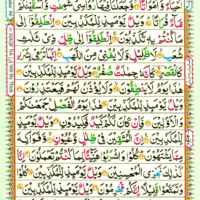 اَحْيَآءً وَّاَمْوَاتًا وَّجَعَلْنَا فِيْهَا رَوَاسِيَ شٰمِخٰتٍ وَّاَسْقَيْنٰكُمْ
مَّآءً فُرَاتًا وَيْلٌ يَّوْمَئِذٍ لِّلْمُكَذِّبِيْنَ اِنْطَلِقُوْۤا اِلٰى مَا
كُنْتُمْ بِهٖ تُكَذِّبُوْنَ اِنْطَلِقُوْۤا اِلٰى ظِلٍّ ذِيْ ثَلٰثِ
شُعَبٍ لَّا ظَلِيْلٍ وَّلَا يُغْنِيْ مِنَ اللَّهَبِ اِنَّهَا تَرْمِيْ بِشَرَرٍ
كَالْقَصْرِ كَاَنَّهٗ جِمٰلَتٌ صُفْرٌ وَيْلٌ يَّوْمَئِذٍ لِّلْمُكَذِّبِيْنَ
هٰذَا يَوْمُ لَا يَنْطِقُوْنَ وَلَا يُؤْذَنُ لَهُمْ فَيَعْتَذِرُوْنَ
وَيْلٌ يَّوْمَئِذٍ لِّلْمُكَذِّبِيْنَ هٰذَا يَوْمُ الْفَصْلِ جَمَعْنٰكُمْ
وَالْاَوَّلِيْنَ فَاِنْ كَانَ لَكُمْ كَيْدٌ فَكِيْدُوْنِ وَيْلٌ يَّوْمَئِذٍ
لِّلْمُكَذِّبِيْنَ اِنَّ الْمُتَّقِيْنَ فِيْ ظِلٰلٍ وَّعُيُوْنٍ وَّفَوَاكِهَ
مِمَّا يَشْتَهُوْنَ كُلُوْا وَاشْرَبُوْا هَنِيْٓئًا بِمَا كُنْتُمْ تَعْمَلُوْنَ
اِنَّا كَذٰلِكَ نَجْزِي الْمُحْسِنِيْنَ وَيْلٌ يَّوْمَئِذٍ لِّلْمُكَذِّبِيْنَ كُلُوْا
وَتَمَتَّعُوْا قَلِيْلًا اِنَّكُمْ مُّجْرِمُوْنَ وَيْلٌ يَّوْمَئِذٍ لِّلْمُكَذِّبِيْنَ